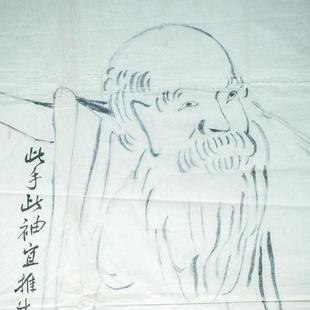 此手此袖宜推